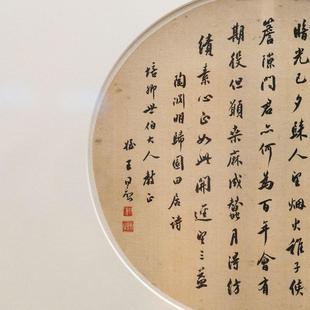 暗光已夕歸人望烟火稚子候
簷隙問君亦何為百年會有
期役但願桑麻成蠶月得紡
績素心正如此開逕望三益
陶淵明歸園田居詩
培卿世伯大人教正
姪王同愈